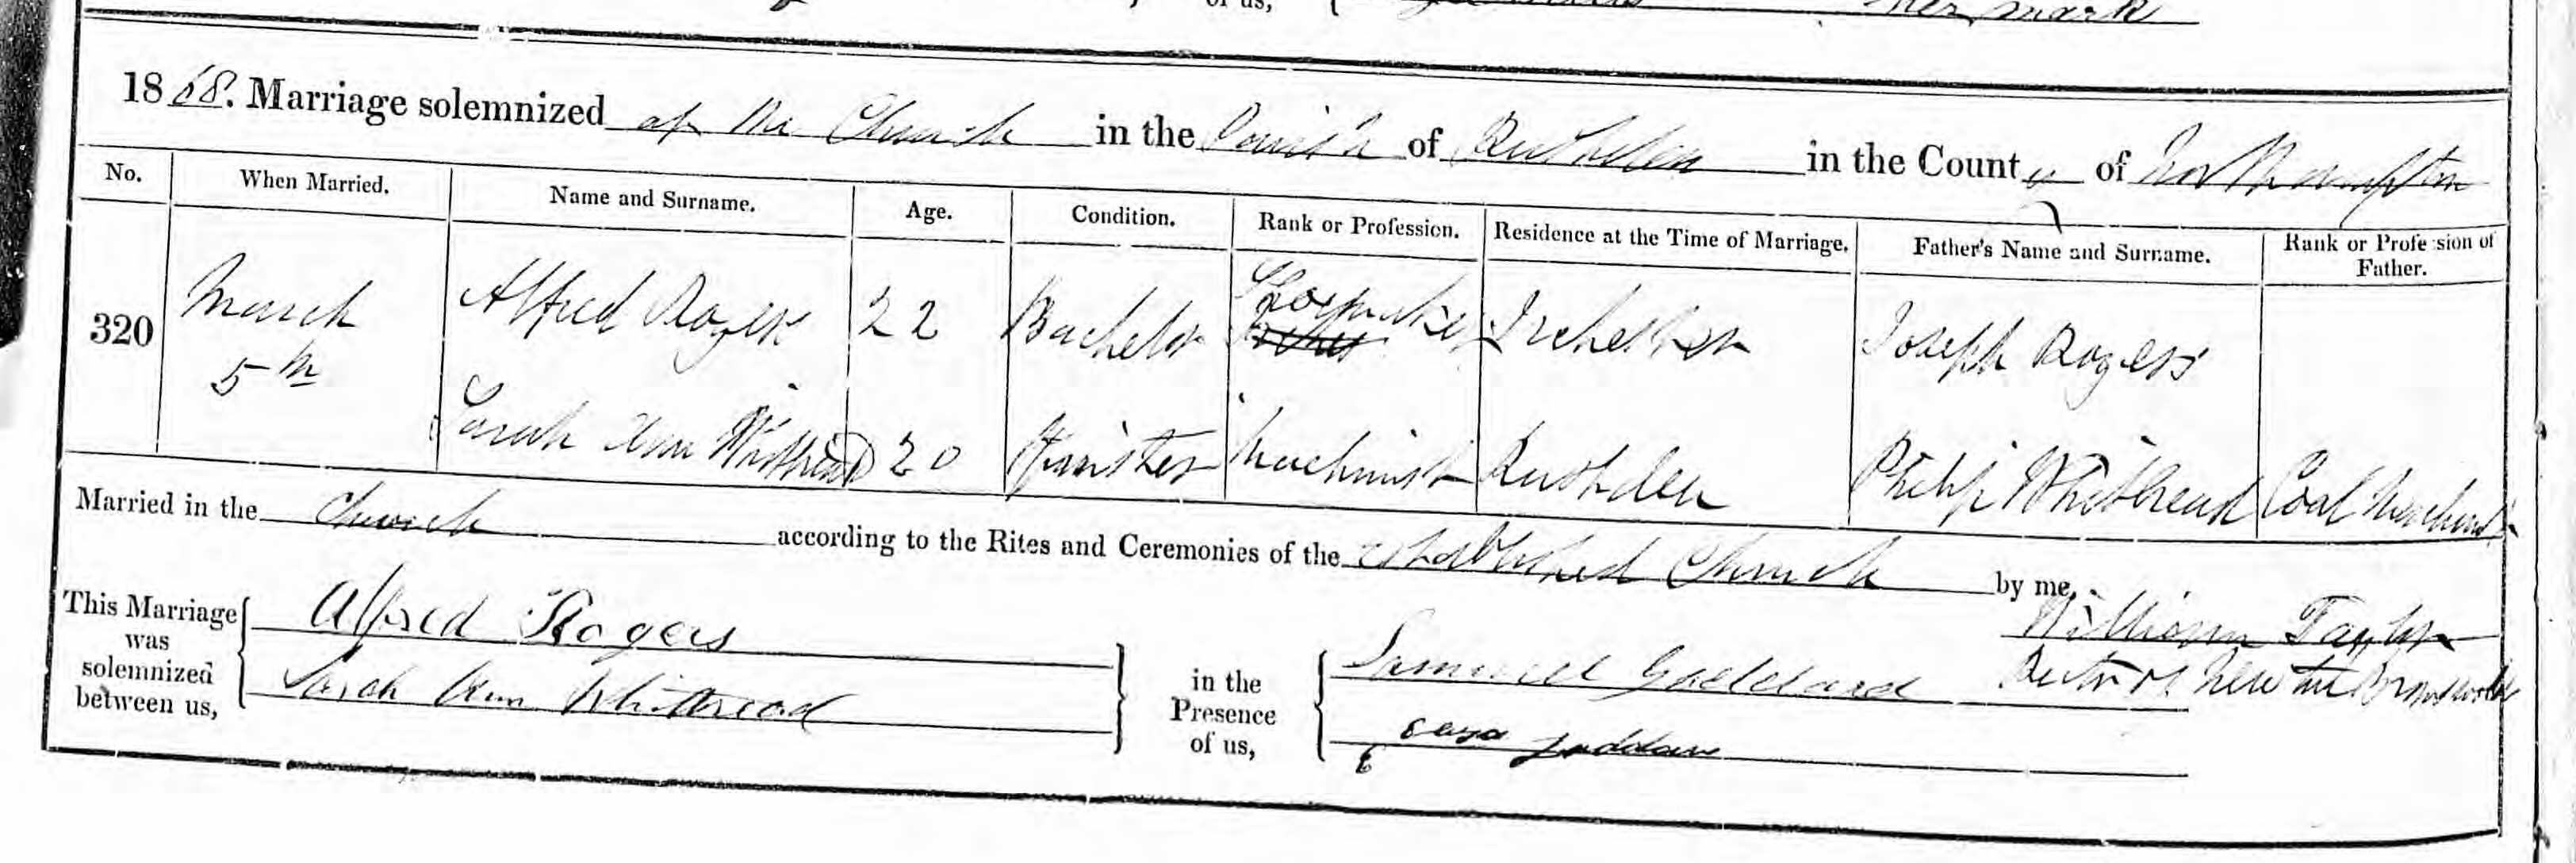 of us, her mark
1868. Marriage solemnized at the Church in the Parish of Rushden in the County of Northampton
No. When Married. Name and Surname. Age. Condition. Rank or Profession. Residence at the Time of Marriage. Father's Name and Surname. Rank or Profession of Father.
320 March 5th Alfred Rogers 22 Bachelor Shoemaker Irchester Joseph Rogers
Sarah Ann Whitbread 20 Spinster Machinist Rushden Philip Whitbread Coal Merchant
Married in the Church according to the Rites and Ceremonies of the Established Church by me,
William Taylor
This Marriage was solemnized between us, Alfred Rogers
Sarah Ann Whitbread
in the Presence of us, Samuel Goddard
Rector of Newton Bromswold